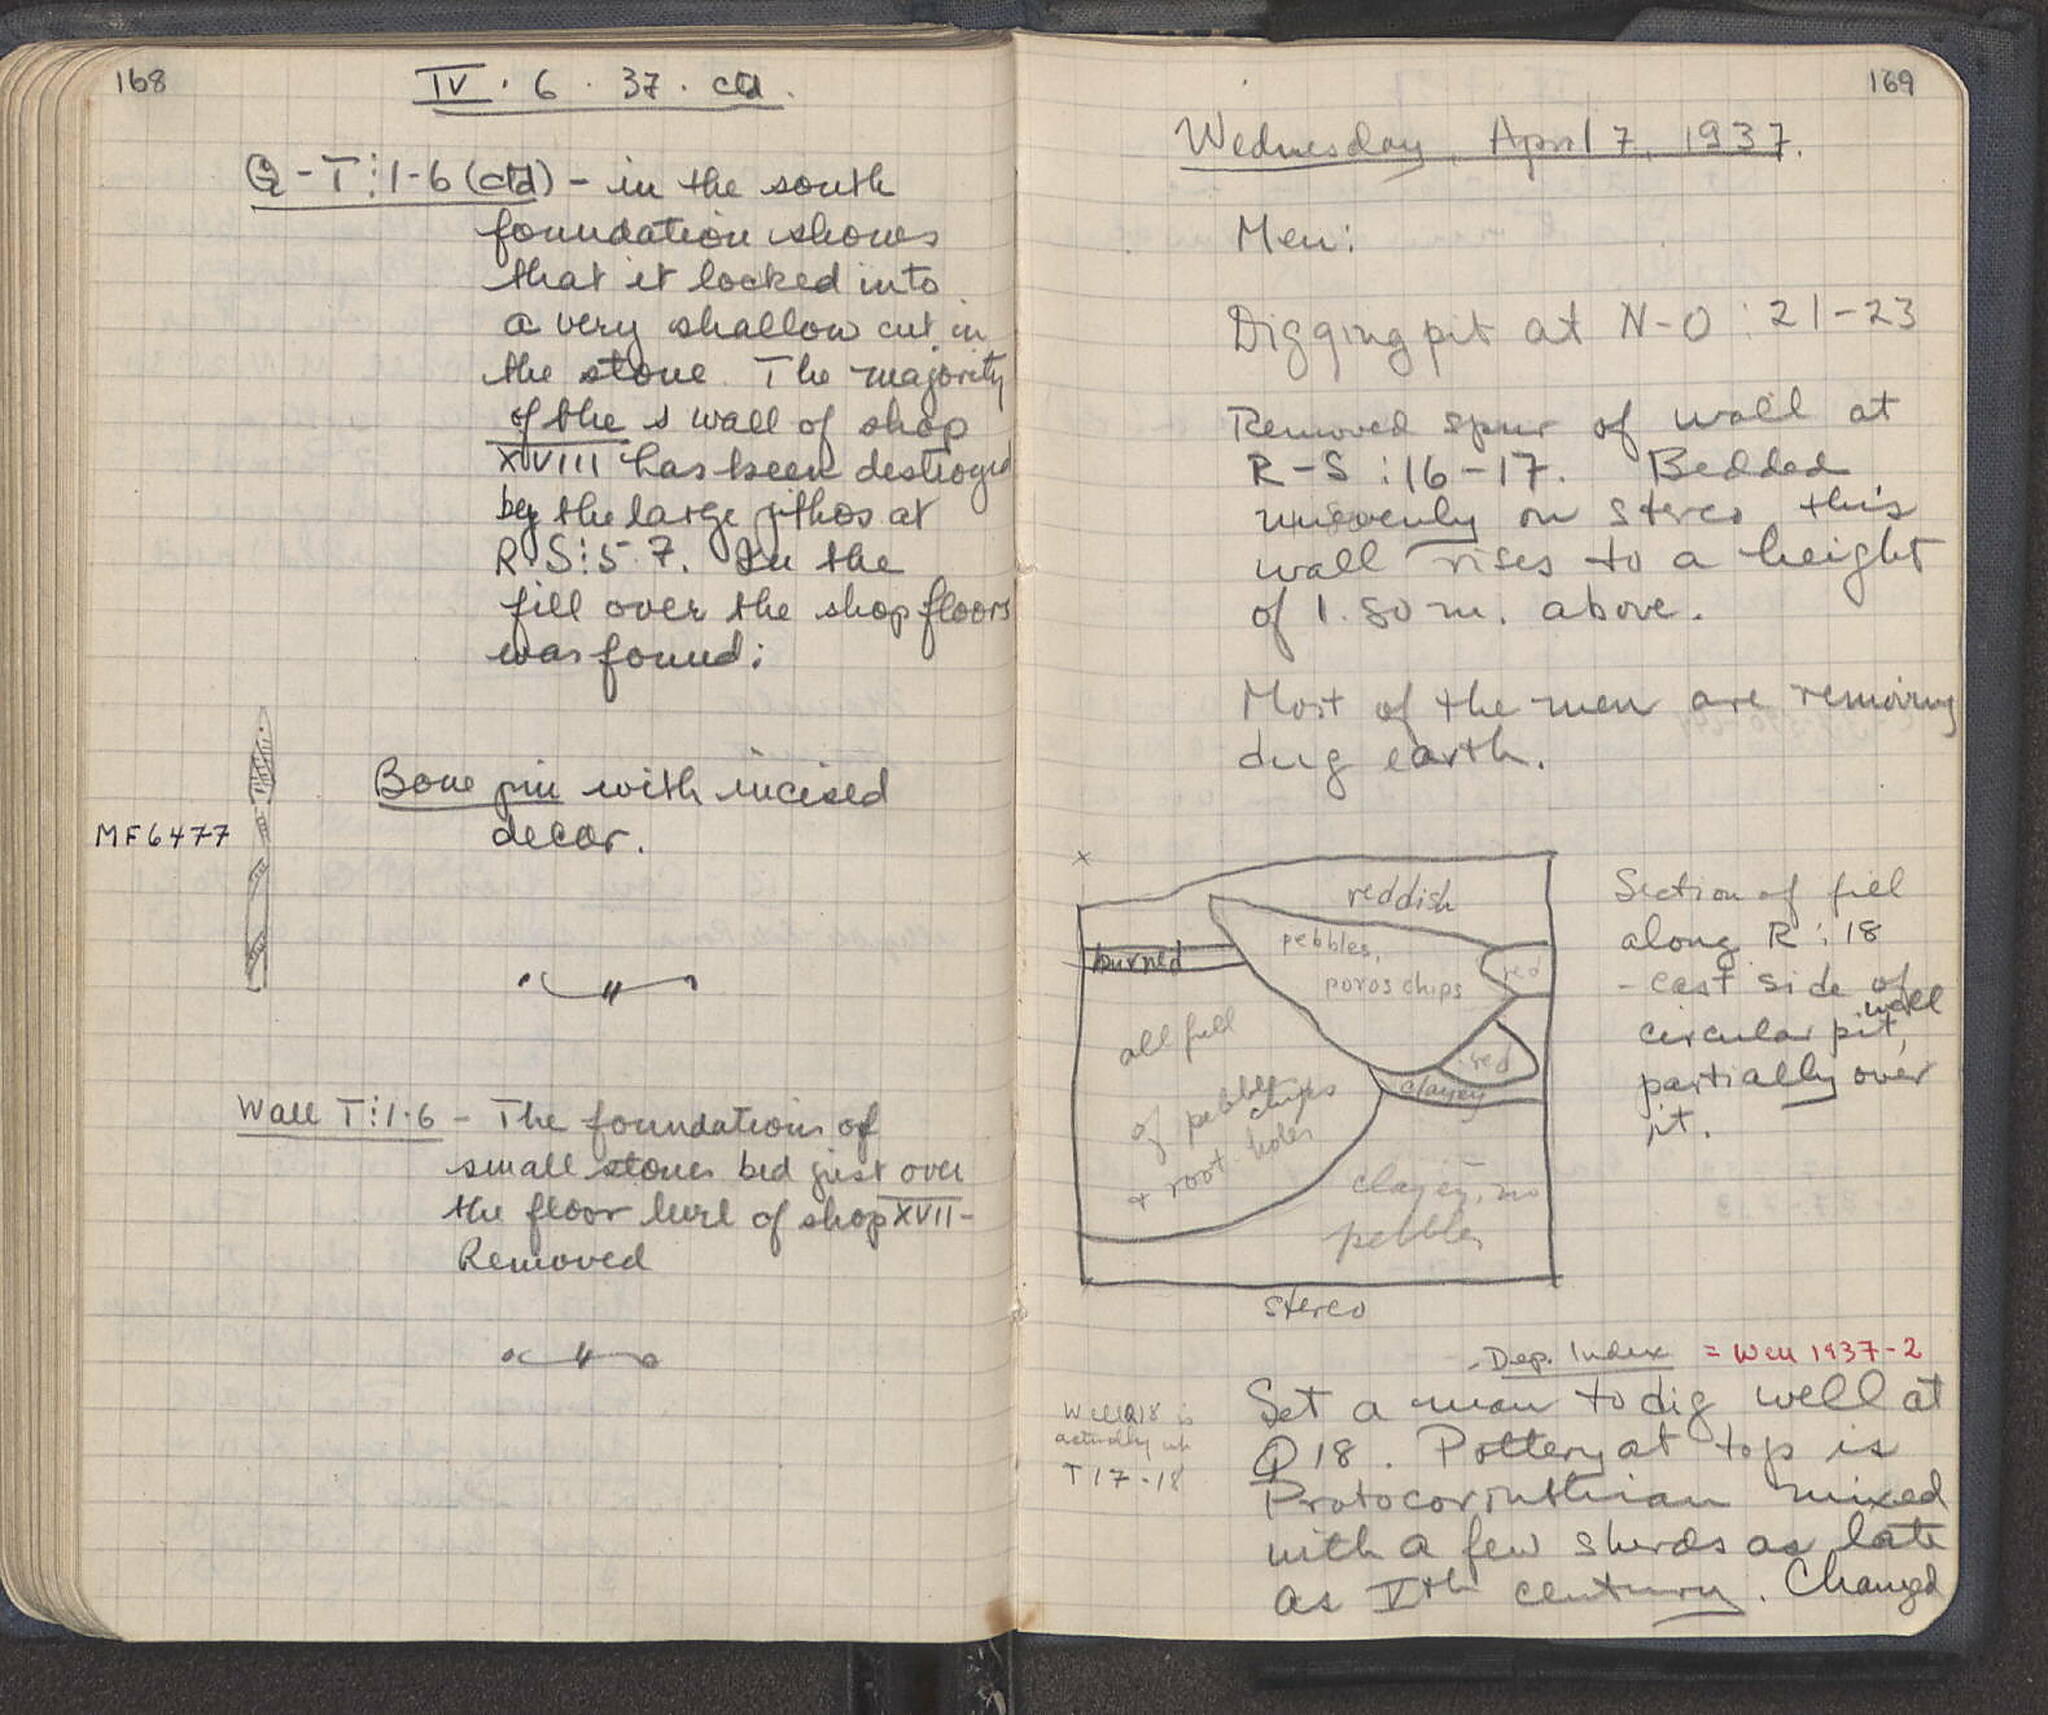 168
IV . 6 . 37 . ctd.
Q-T:1-6 (ctd) - in the south
foundation shows
that it locked into
a very shallow cut in
the stone. The majority
of the S wall of shop
XVIII has been destroyed
by the large pithos at
R-S:5-7. In the
fill over the shop floors
was found:
Bone pin with incised
decor.
MF6477
Wall T:1-6 - The foundations of
small stones bed just over
the floor level of shop XVII-
Removed
169
Wednesday, April 7, 1937.
Men:
Digging pit at N-O:21-23
Removed spur of wall at
R-S:16-17. Bedded
unevenly on stereo this
wall rises to a height
of 1.80 m. above.
Most of the men are removing
dug earth.
x
reddish
pebbles,
poros chips
red
burned
all full
of pebbles
chips
+ root-holes
red
clayey
clayey, no
pebbles
stereo
Section of fill
along R:18
- east side of
well
circular pit,
partially over
it.
- Dep. Index = Well 1937-2
Set a man to dig well at
Q18. Pottery at top is
Protocorinthian mixed
with a few sherds as late
as Vth century. Changed
Well Q18 is
actually at
T17-18